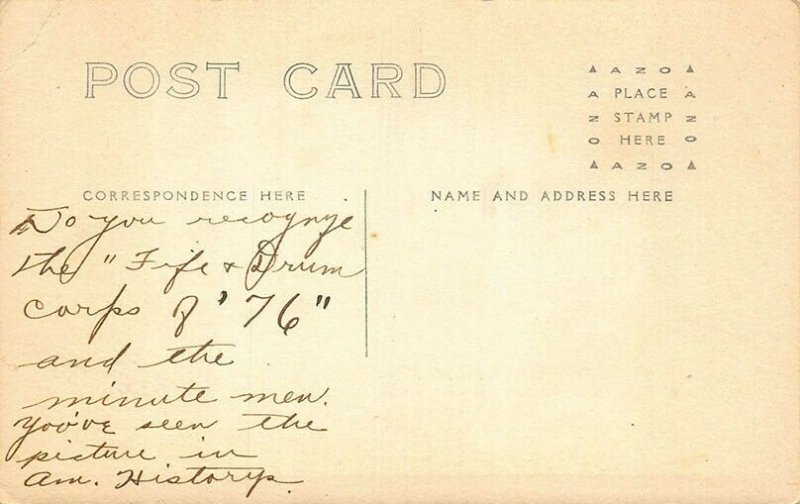 POST CARD
▲ A Z O ▲
A PLACE A
Z STAMP Z
O HERE O
▲ A Z O ▲
CORRESPONDENCE HERE
NAME AND ADDRESS HERE
Do you recognize
the "Fife & Drum
Corps of '76"
and the
minute men.
You've seen the
picture in
Am. History.